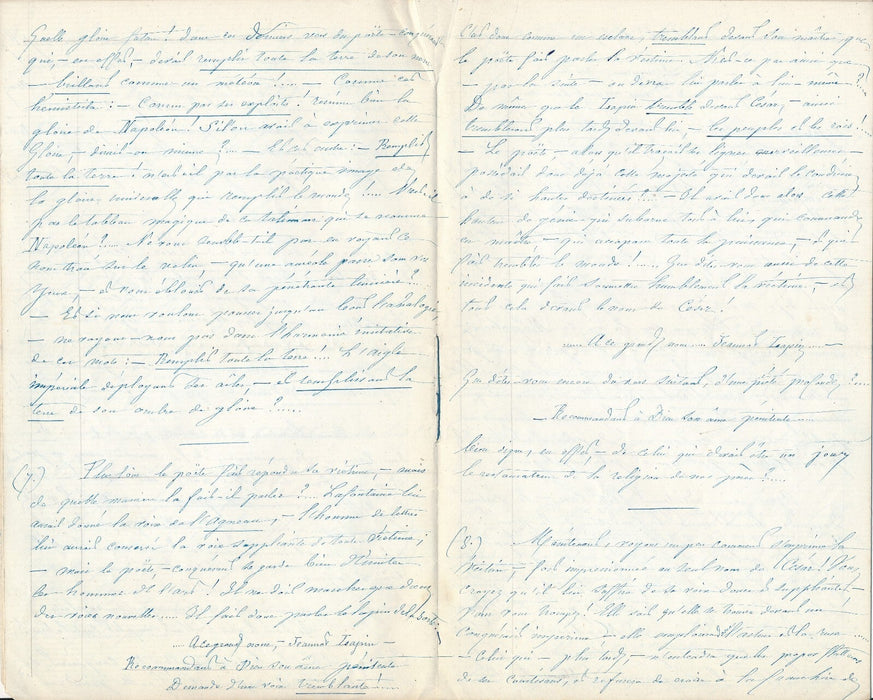 Quelle gloire future! dans ces derniers vers du poëte-conquérant
qui, - en effet, - devait remplir toute la terre de son nom
- brillant comme un météore!.... - Comme cet
hémistiche: - Connu par ses exploits! résume bien la
gloire de Napoléon! Si l'on avait à exprimer cette
gloire, - dirait-on mieux?... - Et cet autre: - Remplir
toute la terre! n'est-il pas la poëtique image de
la gloire universelle qui remplit le monde!.... N'est-il
pas le tableau magique de ce qui se nomme
Napoléon?.... Ne vous semble-t-il pas en voyant ce
nom tracé sur le velin, - qu'une auréole passe sous vos
yeux, - et vous éblouit de sa pénétrante lumière?...
- Et si nous voulons pousser jusqu'au bout l'analogie,
- ne voyons-nous pas dans l'harmonie imitative
de ces mots: - Remplir toute la terre!.... L'aigle
impériale déployant ses ailes, - et remplissant la
terre de son ombre de gloire?.....
(7.) Plus loin le poëte fait répondre sa victime, - mais
de quelle manière la fait-il parler?.... Lafontaine lui
aurait donné la voix de l'agneau, - l'homme de lettres
lui aurait conservé la voix suppliante de toute victime;
- mais le poëte-conquérant se garde bien d'imiter
les hommes de l'art! Il ne doit marcher que dans
des voies nouvelles.... Il fait donc parler le lapin de la sorte:
.... A ce grand nom, - Jeannot Lapin -
Recommandant à Dieu son âme pénitente
Demande d'une voix tremblante!....
C'est donc comme un esclave, tremblant devant son maître, que
le poëte fait parler la victime. N'est-ce pas ainsi que
- par la suite - on devra lui parler à lui-même?
De même que le lapin tremble devant César, - ainsi
trembleront plus tard devant lui, - les peuples et les rois!...
- Le poëte, - alors qu'il traçait ces lignes merveilleuses -
possédait donc déjà cette majesté qui devait le conduire
à de si hautes destinées?... - Il avait donc alors cette
hauteur de génie qui subjugue tout à lui, qui commande
en maître, - qui accapare toute la puissance, - et qui
fait trembler le monde!..... Que dites-vous aussi de cette
incidente qui fait soumettre humblement la victime, - et
tout cela devant le nom de César!
.... A ce grand nom ... Jeannot Lapin .... -
Que dites-vous encore du vers suivant, d'une piété profonde?....
- Recommandant à Dieu son âme pénitente ....
bien digne, en effet, - de celui qui devait être un jour
le restaurateur de la religion de nos pères?....
(8.) Maintenant, voyons un peu comment s'exprime la
victime, - fort impressionnée au seul nom de César! Vous
croyez qu'il lui suffira de sa voix douce et suppliante,
- vous vous trompez! Elle sait qu'elle se trouve devant un
conquérant impérieux - elle emploiera l'astuce et la ruse
- Celui qui - plus tard, - n'entendra que les propos flatteurs
de ses courtisans, et refusera de croire à la franchise de